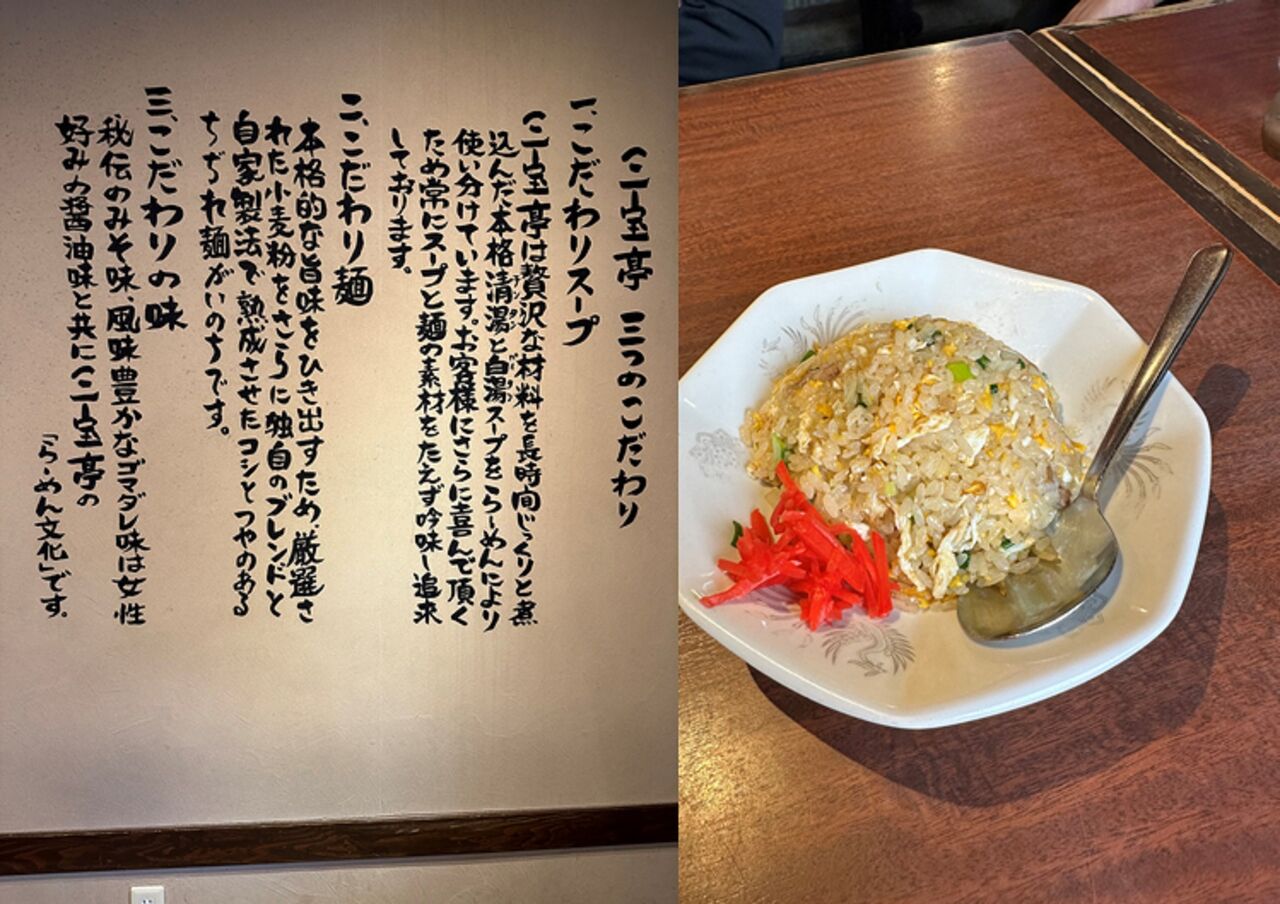 三宝亭 三つのこだわり
一、こだわりスープ
三宝亭は贅沢な材料を長時間じっくりと煮
込んだ、本格清湯と白湯スープをらーめんにより
使い分けています。お客様にさらに喜んで頂く
ため常にスープと麺の素材をたえず吟味し追求
しております。
二、こだわり麺
本格的な旨味をひき出すため、厳選さ
れた小麦粉をさらに独自のブレンドと
自家製法で熟成させたコシとつやのある
ちぢれ麺がいのちです。
三、こだわりの味
秘伝のみそ味、風味豊かなゴマダレ味は女性
好みの醤油味と共に三宝亭の
「らーめん文化」です。